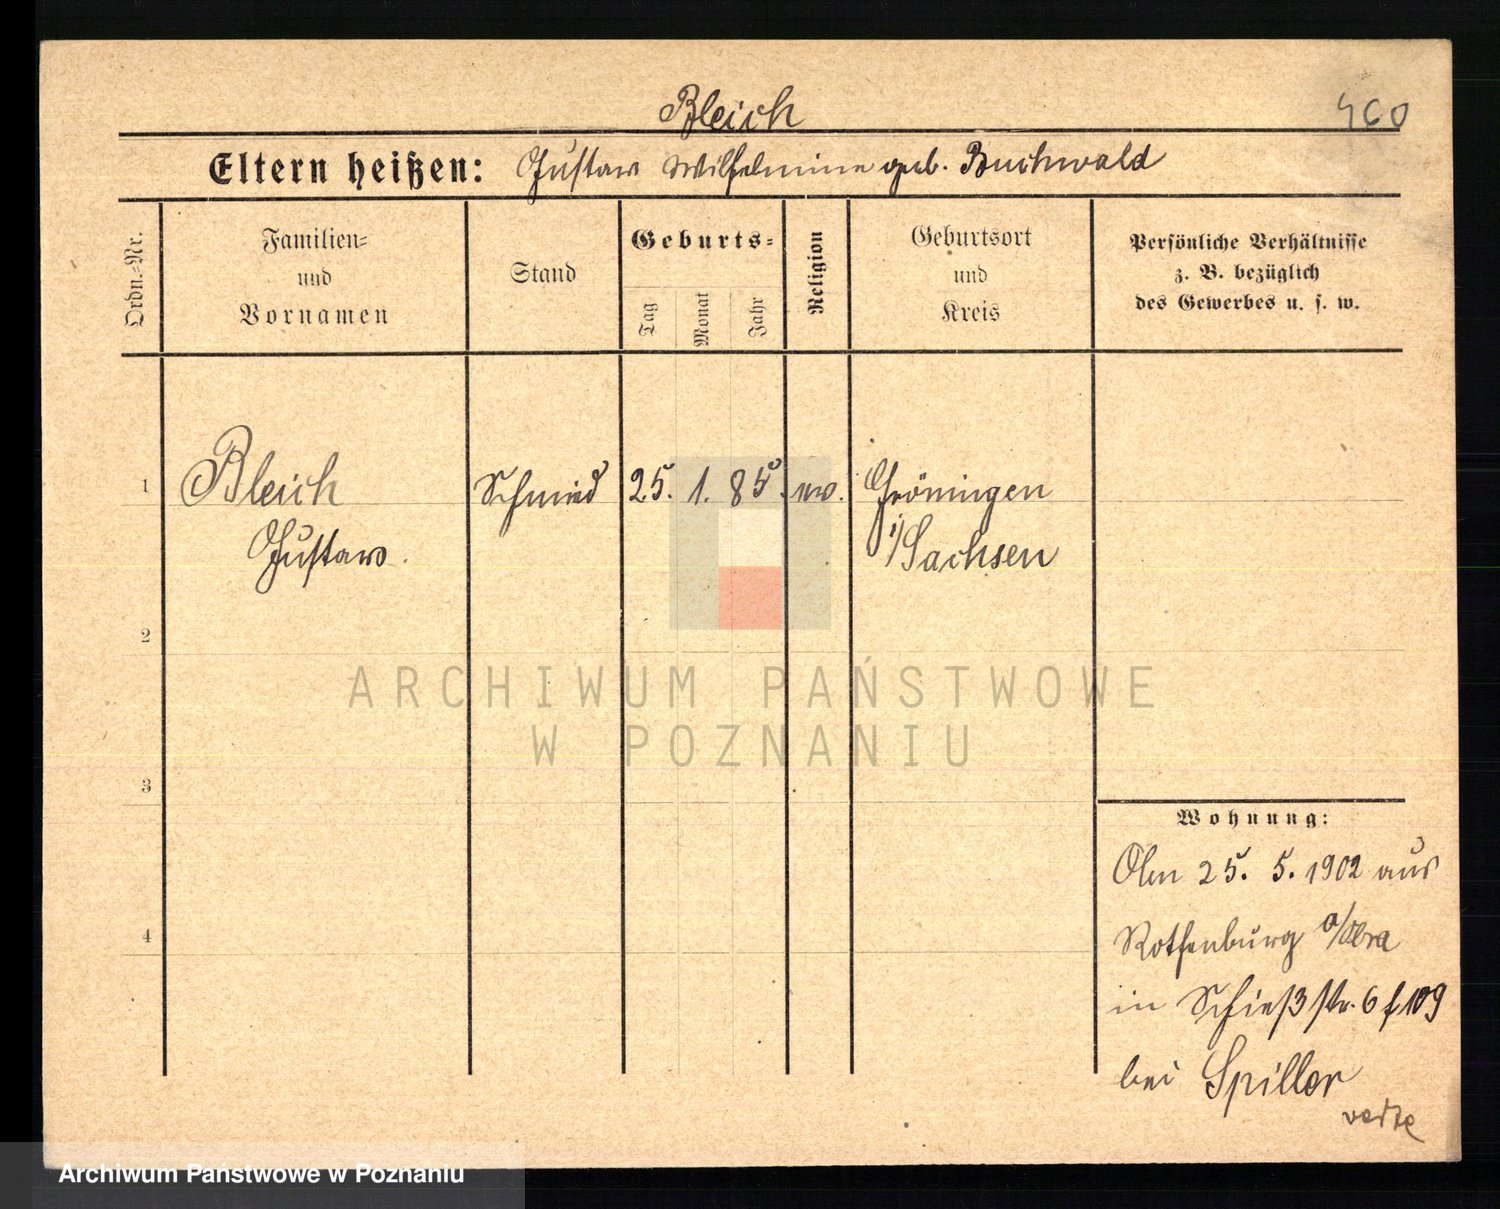 Bleich
460
Eltern heißen: Gustav Wilhelmine geb. Buchwald
Ordn.-Nr.
Familien-
und
Vornamen
Stand
Geburts-
Tag
Monat
Jahr
Religion
Geburtsort
und
Kreis
Persönliche Verhältnisse
z. B. bezüglich
des Gewerbes u. s. w.
1
Bleich
Gustav.
Schmied
25. 1. 85.
ev.
Gröningen
i/Sachsen
2
3
4
Wohnung:
Am 25. 5. 1902 aus
Rothenburg a/Obra
in Schießstr. 6 f 109
bei Spiller
verte
ARCHIWUM PAŃSTWOWE
W POZNANIU
Archiwum Państwowe w Poznaniu